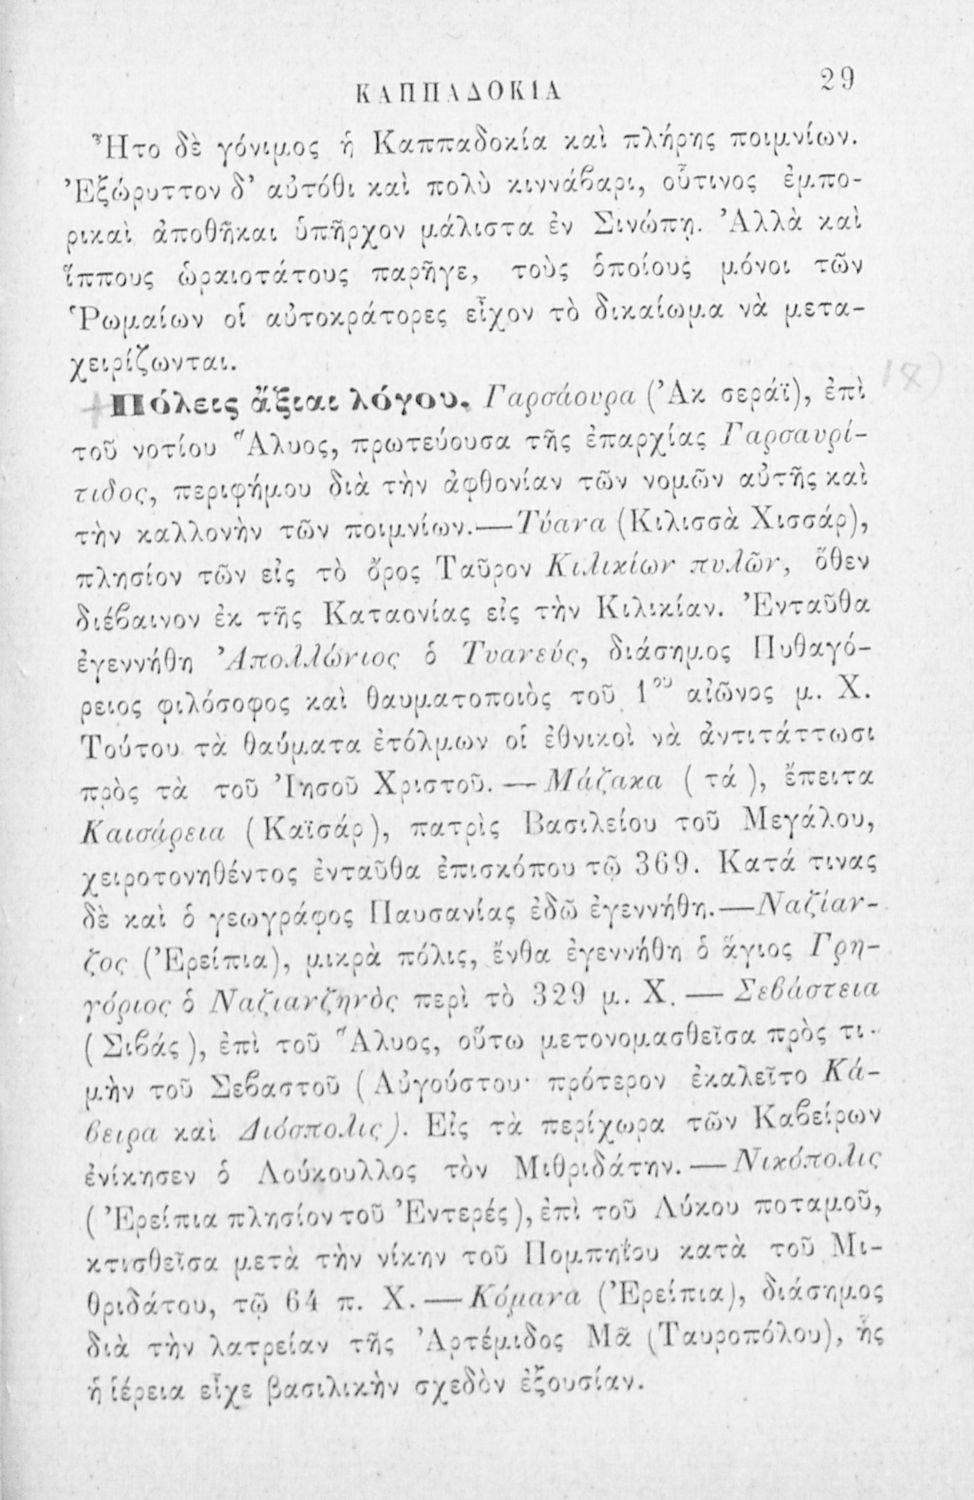 ΚΑΠΠΑΔΟΚΙΑ 29
Ἦτο δὲ γόνιμος ἡ Καππαδοκία καὶ πλήρης ποιμνίων.
Ἐξώρυττον δ' αὐτόθι καὶ πολὺ κιννάβαρι, οὗτινος ἐμπο-
ρικαὶ ἀποθῆκαι ὑπῆρχον μάλιστα ἐν Σινώπῃ. Ἀλλὰ καὶ
ἵππους ὡραιοτάτους παρῆγε, τοὺς ὁποίους μόνοι τῶν
Ῥωμαίων οἱ αὐτοκράτορες εἶχον τὸ δικαίωμα νὰ μετα-
χειρίζωνται.
Πόλεις ἄξιαι λόγου. Γαρσάουρα (Ἀκ σεράϊ), ἐπὶ
τοῦ νοτίου Ἅλυος, πρωτεύουσα τῆς ἐπαρχίας Γαρσαυρί-
τιδος, περιφήμου διὰ τὴν ἀφθονίαν τῶν νομῶν αὐτῆς καὶ
τὴν καλλονὴν τῶν ποιμνίων.—Τύανα (Κιλισσὰ Χισσάρ),
πλησίον τῶν εἰς τὸ ὄρος Ταῦρον Κιλικίων πυλῶν, ὅθεν
διέβαινον ἐκ τῆς Καταονίας εἰς τὴν Κιλικίαν. Ἐνταῦθα
ἐγεννήθη Ἀπολλώνιος ὁ Τυανεύς, διάσημος Πυθαγό-
ρειος φιλόσοφος καὶ θαυματοποιὸς τοῦ 1ου αἰῶνος μ. Χ.
Τούτου τὰ θαύματα ἐτόλμων οἱ ἐθνικοὶ νὰ ἀντιτάττωσι
πρὸς τὰ τοῦ Ἰησοῦ Χριστοῦ. — Μάζακα ( τά ), ἔπειτα
Καισάρεια (Καϊσάρ), πατρὶς Βασιλείου τοῦ Μεγάλου,
χειροτονηθέντος ἐνταῦθα ἐπισκόπου τῷ 369. Κατά τινας
δὲ καὶ ὁ γεωγράφος Παυσανίας ἐδῶ ἐγεννήθη.—Ναζίαν-
ζος (Ἐρείπια), μικρὰ πόλις, ἔνθα ἐγεννήθη ὁ ἅγιος Γρη-
γόριος ὁ Ναζιανζηνὸς περὶ τὸ 329 μ. Χ. — Σεβάστεια
( Σιβάς ), ἐπὶ τοῦ Ἅλυος, οὕτω μετονομασθεῖσα πρὸς τι-
μὴν τοῦ Σεβαστοῦ ( Αὐγούστου· πρότερον ἐκαλεῖτο Κά-
βειρα καὶ Διόσπολις). Εἰς τὰ περίχωρα τῶν Καβείρων
ἐνίκησεν ὁ Λούκουλλος τὸν Μιθριδάτην. — Νικόπολις
( Ἐρείπια πλησίον τοῦ Ἐντερές ), ἐπὶ τοῦ Λύκου ποταμοῦ,
κτισθεῖσα μετὰ τὴν νίκην τοῦ Πομπηΐου κατὰ τοῦ Μι-
θριδάτου, τῷ 64 π. Χ. — Κόμανα (Ἐρείπια), διάσημος
διὰ τὴν λατρείαν τῆς Ἀρτέμιδος Μᾶ (Ταυροπόλου), ἧς
ἡ ἱέρεια εἶχε βασιλικὴν σχεδὸν ἐξουσίαν.